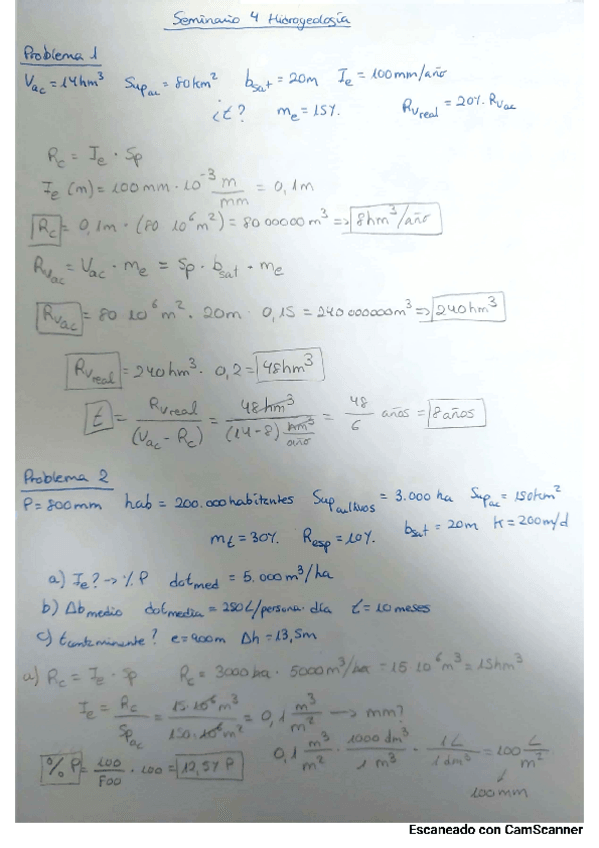 Seminario 4 Hidrogeología
Problema 1
Vac = 14hm³ Supac = 80km² bsat = 20m Ie = 100mm/año
¿t? me = 15% Rvreal = 20% · Rvac
Rc = Ie · Sp
Ie (m) = 100mm · 10⁻³ m/mm = 0,1m
Rc = 0,1m · (80 10⁶m²) = 8000000m³ => 8hm³/año
Rvac = Vac · me = Sp · bsat · me
Rvac = 80 10⁶m² · 20m · 0,15 = 240000000m³ => 240hm³
Rvreal = 240hm³ · 0,2 = 48hm³
t = Rvreal/(Vac - Rc) = 48hm³/(14-8) hm³/año = 48/6 años = 8años
Problema 2
P = 800mm hab = 200.000habitentes Supcultivos = 3.000 ha Supac = 150km²
mt = 30% Resp = 10% bsat = 20m K = 200m/d
a) Ie? -> % P dotmed = 5.000m³/ha
b) Δbmedio dotmedia = 250L/persona·día t = 10meses
c) tcontaminante? e = 900m Δh = 13,5m
a) Rc = Ie · Sp Rc = 3000ha · 5000m³/ha = 15 10⁶m³ = 15hm³
Ie = Rc/Spac = 15·10⁶m³/150·10⁶m² = 0,1 m³/m² -> mm?
0,1 m³/m² · 1000dm³/1 m³ · 1L/1dm³ = 100 L/m²
100mm
% P = 100/800 · 100 = 12,5% P
Escaneado con CamScanner